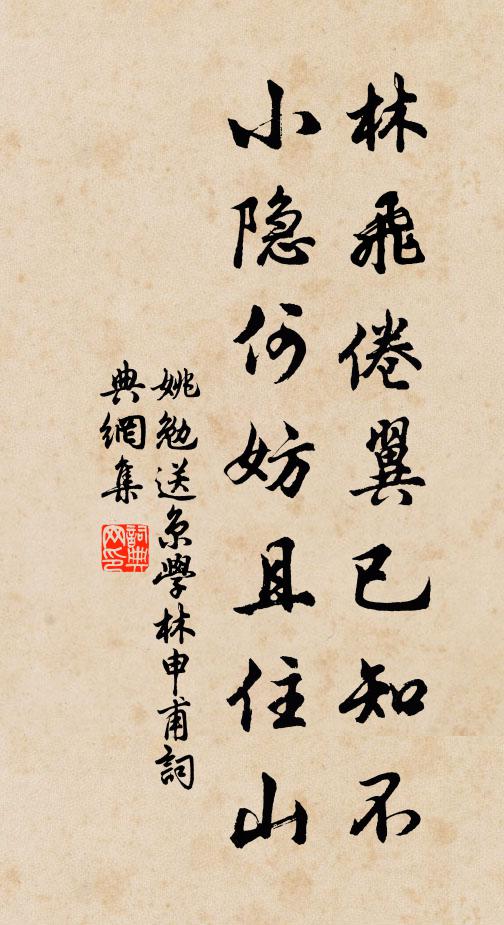 林飛倦翼已知不
小隐何妨且住山
姚勉送京學林申甫詞
典網集
詞典网印